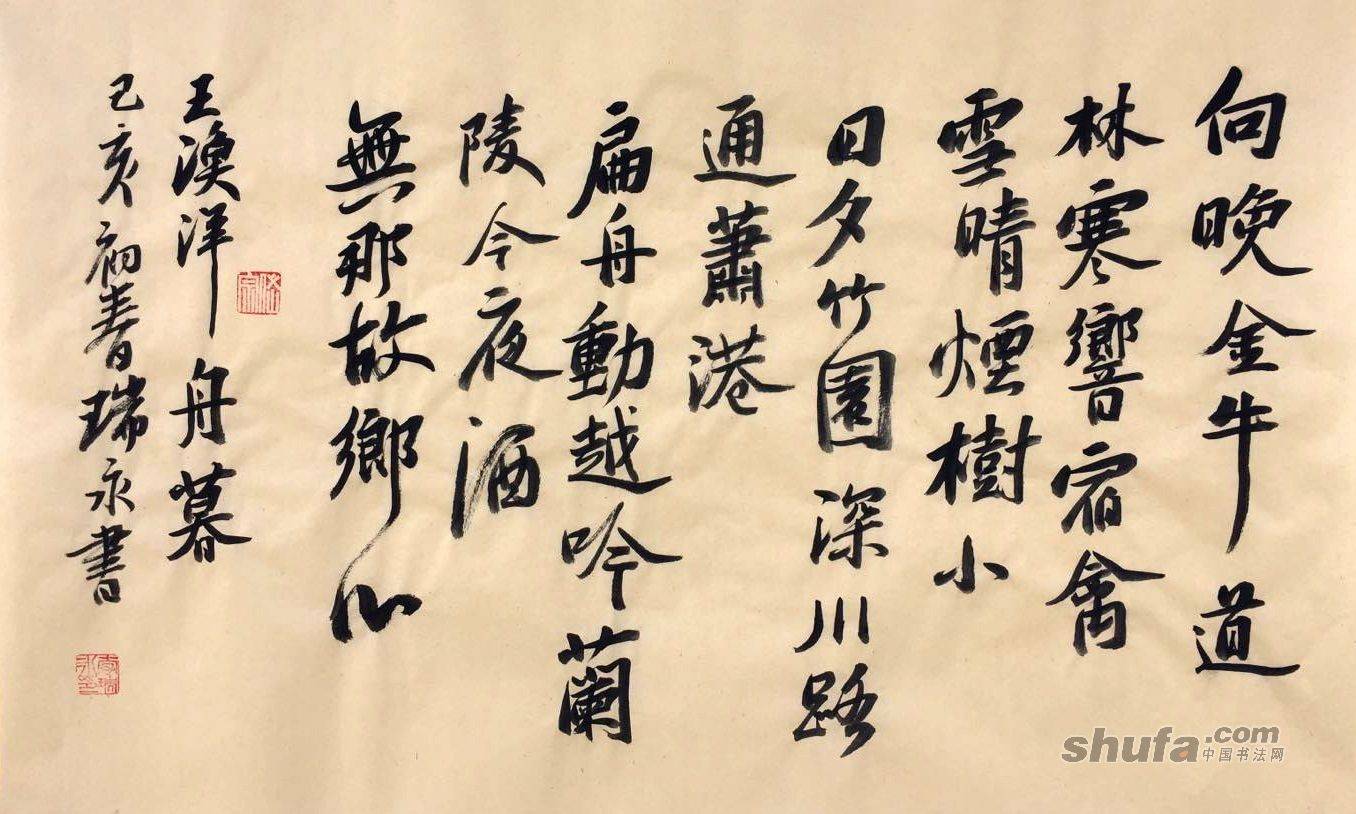 向晚金牛道
林寒響宿禽
雪晴煙樹小
日夕竹園深川路
通蕭港
扁舟動越吟蘭
陵今夜酒
無那故鄉心
王渙洋舟暮
己亥初春瑞永書
shufa.com
中国书法网